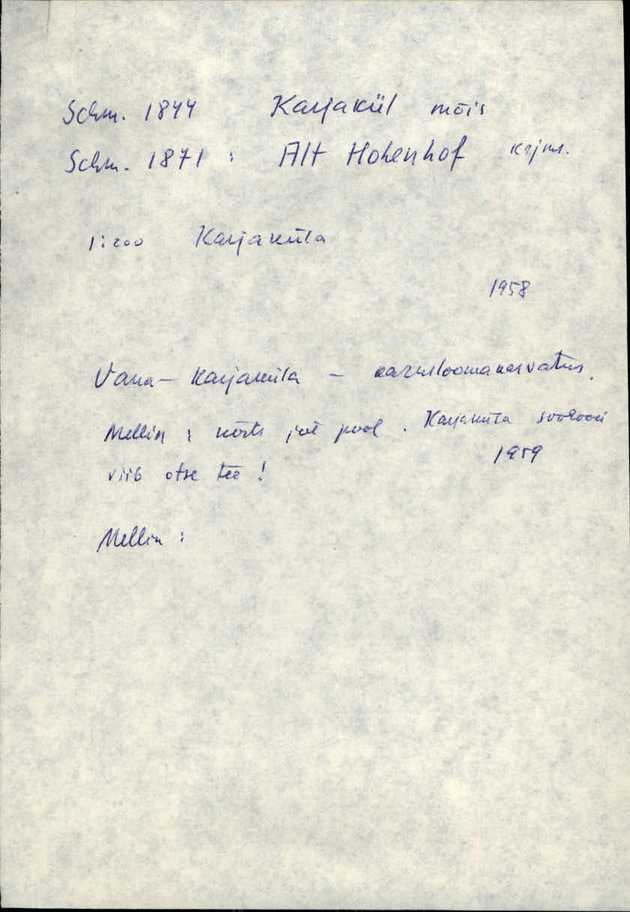 Schm. 1844 Karjakül mõis
Schm. 1871 : Alt Hohenhof krjms.
1:200 Karjaküla
1958
Vana-Karjaküla – karusloomakasvatus.
Mellin : kõrts jõe pool. Karjaküla
1959
viib otse tee!
Mellin :